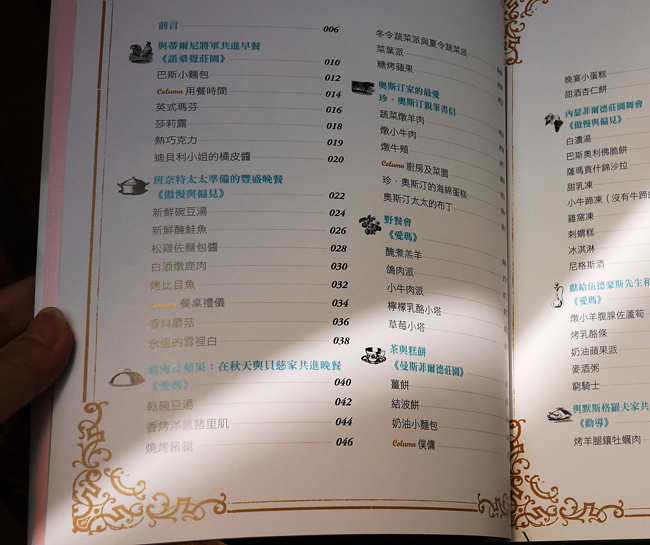 前言 006
與蒂爾尼將軍共進早餐
《諾桑覺莊園》 010
巴斯小麵包 012
Column 用餐時間 014
英式瑪芬 016
莎莉露 018
熱巧克力 019
迪貝利小姐的橘皮醬 020
班奈特太太準備的豐盛晚餐
《傲慢與偏見》 022
新鮮碗豆湯 024
新鮮醃鮭魚 026
松雞佐麵包醬 028
白酒燉鹿肉 030
烤比目魚 032
Column 餐桌禮儀 034
香料蘑菇 036
永恆的雪裡白 038
豬肉及蘋果：在秋天與貝慈家共進晚餐
《愛瑪》 040
乾碗豆湯 042
香烤洋蔥豬里肌 044
燒烤豬腿 046
冬令蔬菜派與夏令蔬菜派
菜葉派
糖烤蘋果
奧斯汀家的最愛
珍·奧斯汀親筆書信
蔬菜燉羊肉
燉小牛肉
燉牛頰
Column 廚房及菜園
珍·奧斯汀的海綿蛋糕
奧斯汀太太的布丁
野餐會
《愛瑪》
醃煮羔羊
鴿肉派
小牛肉派
檸檬乳酪小塔
草莓小塔
茶與糕餅
《曼斯菲爾德莊園》
薑餅
結波餅
奶油小麵包
Column 僕傭
晚宴小蛋糕
甜酒杏仁餅
內瑟菲爾德莊園舞會
《傲慢與偏見》
白濃湯
巴斯奧利佛脆餅
薩瑪貢什錦沙拉
甜乳凍
小牛蹄凍（沒有牛蹄的
雞窩凍
刺蝟糕
冰淇淋
尼格斯酒
獻給伍德豪斯先生和
《愛瑪》
燉小羊腹腺佐蘆筍
烤乳酪條
奶油蘋果派
麥酒粥
窮騎士
與默斯格羅夫家共
《勸導》
烤羊腿鑲牡蠣肉